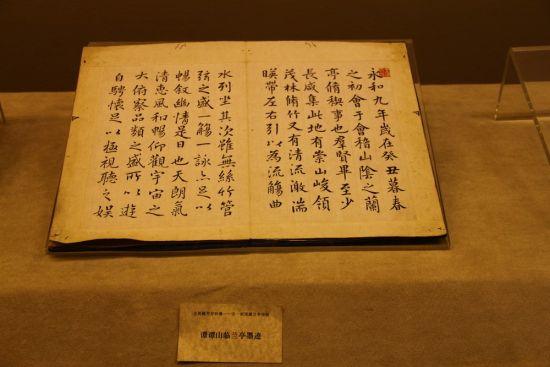 永和九年歲在癸丑暮春
之初會于會稽山陰之蘭
亭脩禊事也羣賢畢至少
長咸集此地有崇山峻領
茂林脩竹又有清流激湍
暎帶左右引以為流觴曲
水列坐其次雖無絲竹管
弦之盛一觴一詠亦足以
暢叙幽情是日也天朗氣
清惠風和暢仰觀宇宙之
大俯察品類之盛所以遊
目騁懷足以極視聽之娛
山临兰亭墨迹